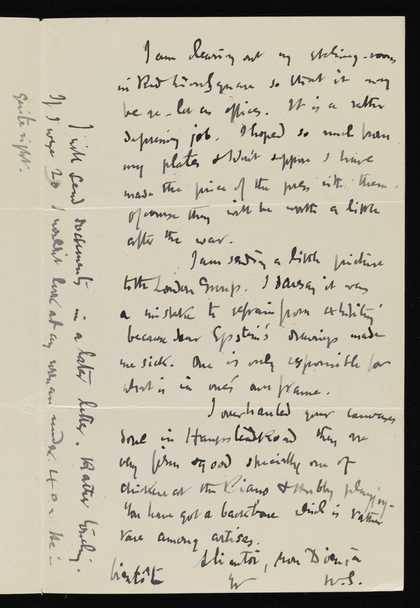 I am clearing out my etching-room
in Red Lion Square so that it may
be re-let as offices. It is a rather
depressing job. I hoped so much from
my plates & don't suppose I have
made the price of the press with them.
Of course they will be worth a little
after the war.
I am sending a little picture
to the London Group. I daresay it was
a mistake to refrain from exhibiting
because dear Epstein's drawings made
me sick. One is only responsible for
what is in one's own frame.
I overhauled your canvases
done in Hampstead Road they are
very firm & good specially one of
chicken at the Piano & Hubby playing.
You have got a backbone which is rather
rare among artists.
bientôt
W.S.
I will send documents in a later letter. Rather touching.
If I were 20 I wouldn't look at any woman under 40. He is
quite right.